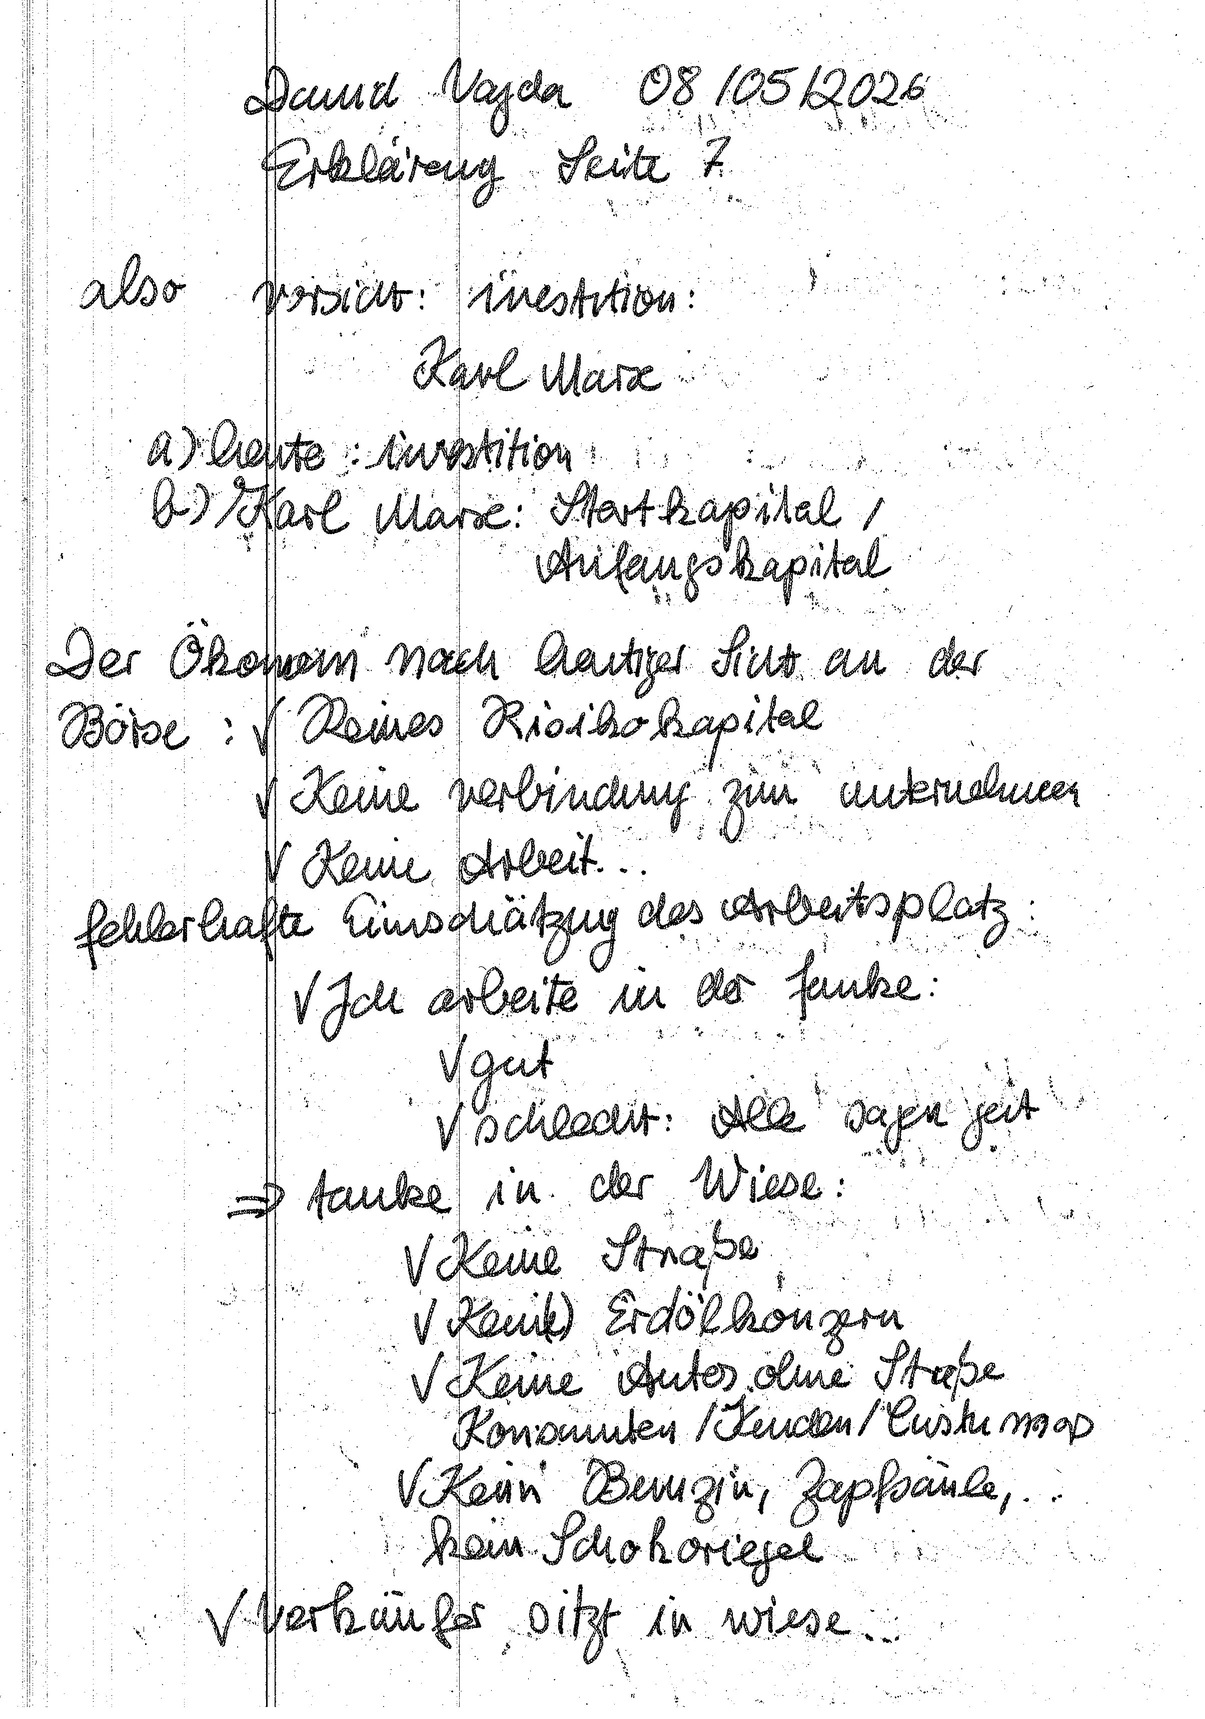 David Vajda 08/05/2026
Erklärung Seite 7
also vorsicht: investition:
Karl Marx
a) heute: investition
b) Karl Marx: Startkapital /
Anfangskapital
Der Ökonom nach heutiger Sicht an der
Börse: √ Reines Risikokapital
√ Keine verbindung zum unternehmen
√ Keine Arbeit...
fehlerhafte Einschätzung des Arbeitsplatz:
√ Ich arbeite in der Tanke:
√ gut
√ schlecht: Alle sagen gut
⇒ tanke in der Wiese:
√ Keine Straße
√ Kein() Erdölkonzern
√ Keine Autos ohne Straße
Konsumten / Kunden /
√ Kein Benzin, Zapfsäule, ...
kein Schokoriegel
√ Verkäufer sitzt in wiese...